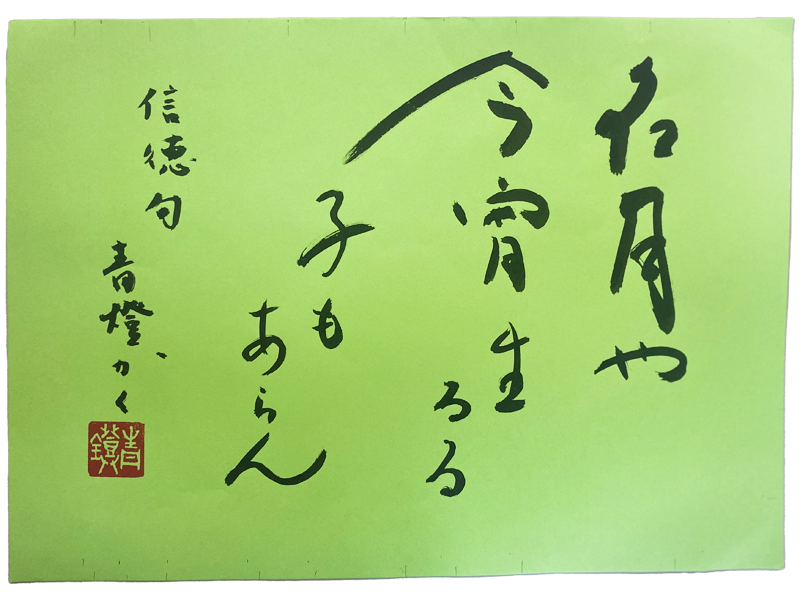 名月や
今宵生
るる
子も
あらん
信徳句
青燈かく